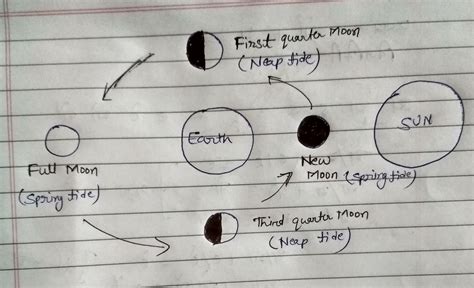 First quarter Moon
(Neap tide)
Earth
SUN
Full Moon
(Spring tide)
New
Moon (Spring tide)
Third quarter Moon
(Neap tide)